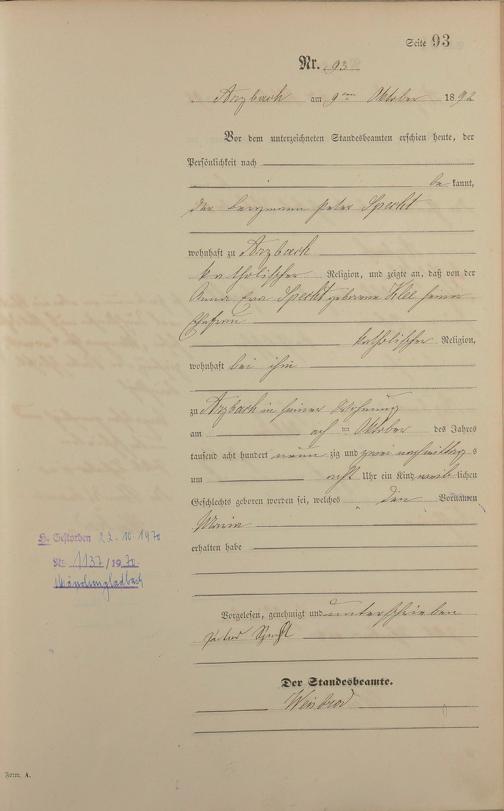 Seite 93
Nr. 93
Arzbach am 9ten Oktober 1892
Vor dem unterzeichneten Standesbeamten erschien heute, der
Persönlichkeit nach
be kannt,
der Bergmann Peter Specht
wohnhaft zu Arzbach
katholischer Religion, und zeigte an, daß von der
Anna Eva Specht geborene Klee seiner
Ehefrau
katholischer Religion,
wohnhaft bei ihm
zu Arzbach in seiner Wohnung
am ach ten Oktober des Jahres
tausend acht hundert neun zig und zwei nachmittags
um acht Uhr ein Kind weib lichen
Geschlechts geboren worden sei, welches den Vornamen
Maria
erhalten habe
Vorgelesen, genehmigt und unterschrieben
Peter Specht
Der Standesbeamte.
H. Gestorben 22.10.1970
Nr. 1137/1970
Mönchengladbach
Form. A.